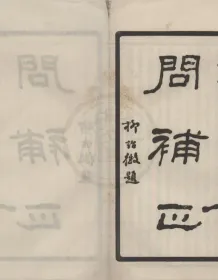 問補正
柳詒徵題